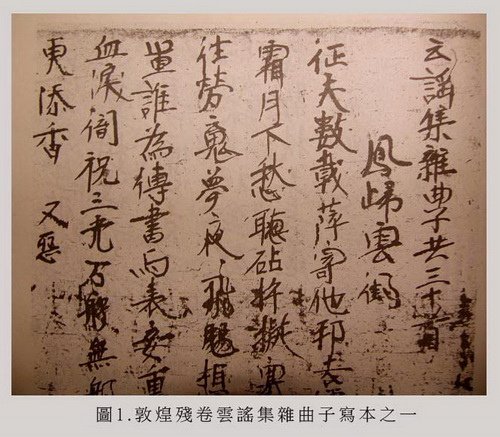 云謡集雜曲子共三十首
鳳歸雲
征夫數載萍寄他邦去
霜月下愁聽砧杵擬塞
往勞魂夢夜〻飛颺想
誰為傳書与表妾
血淚闇祝三光万般無
更添香 又怨
圖1.敦煌殘卷雲謠集雜曲子寫本之一